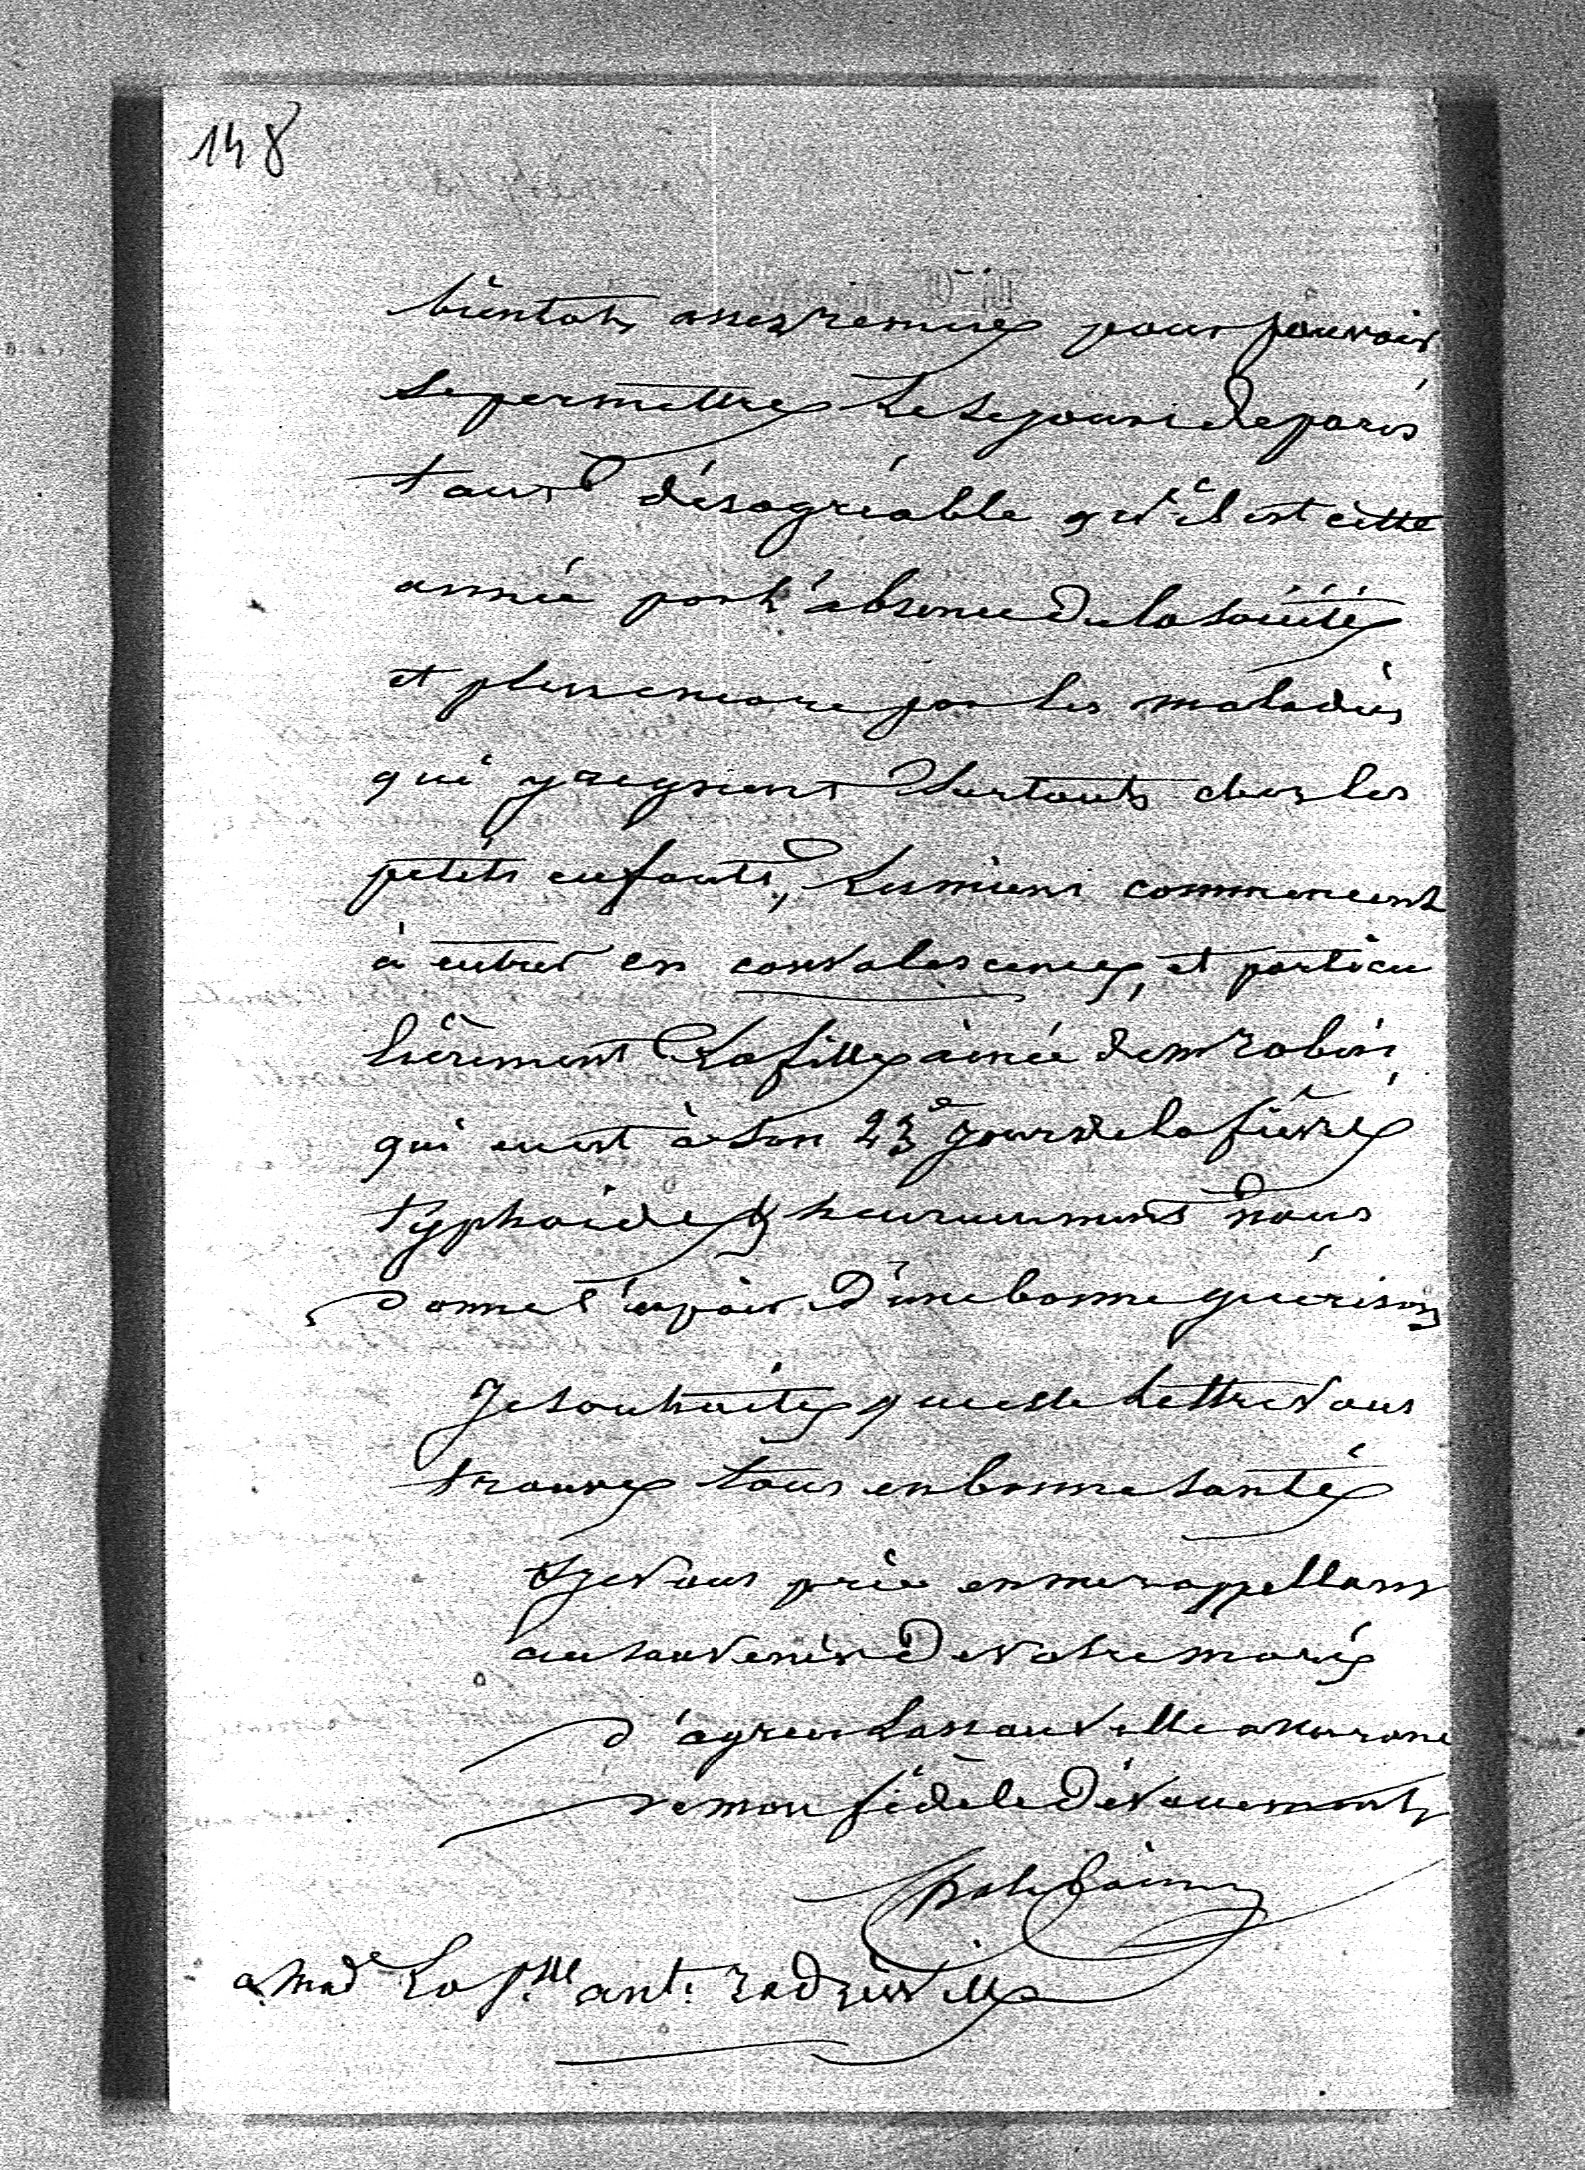 148
bientot assez remise pour pouvoir
se permettre le sejour de paris
tout désagréable qu'il est cette
année par l'absence de la société
et plus encore par les maladies
qui y regnent surtout chez les
petits enfants, les miens commencent
à entrer en convalescence, et particu
lièrement la fille ainée de mr robin
qui en est à son 23e jour de la fièvre
typhoide & heureusement nous
donne l'espoir d'une bonne guérison
Je souhaite que cette lettre vous
trouve tous en bonne santé
& je vous prie en me rappellant
au souvenir de votre mari
d'agreer la nouvelle assurance
de mon fidèle dévouement
a Made La psse ant. radziwille